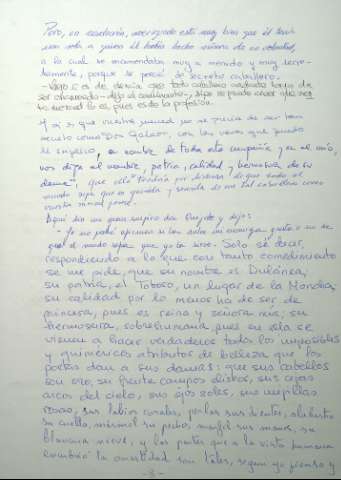 Pero, en resolución, averiguado está muy bien que él tenía
una sola a quien él había hecho señora de su voluntad,
a la cual se encomendaba muy a menudo y muy secre-
tamente, porque se preció de secreto caballero.
- Luego si es de esencia que todo caballero andante haya de
ser enamorado - dijo el caminante-, bien se puede creer que
vuestra merced lo es, pues es de la profesión.
Y si es que vuestra merced no se precia de ser tan
secreto como Don Galaor, con las veras que puedo
le suplico, en nombre de toda esta compañía y en el mío,
nos diga el nombre, patria, calidad y hermosura de su
dama", que ella tendría por dichosa de que todo el
mundo sepa que es querida y servida de un tal caballero como
vuestra merced parece.
Aquí dio un gran suspiro don Quijote y dijo:
- Yo no podré afirmar si la dulce mi enemiga gusta o no de
que el mundo sepa que yo la sirvo. Solo sé decir,
respondiendo a lo que con tanto comedimiento
se me pide, que su nombre es Dulcinea;
su patria, el Toboso, un lugar de la Mancha;
su calidad por lo menos ha de ser de
princesa, pues es reina y señora mía; su
hermosura, sobrehumana, pues en ella se
vienen a hacer verdaderos todos los imposibles
y quiméricos atributos de belleza que los
poetas dan a sus damas: que sus cabellos
son oro, su frente campos elíseos, sus cejas
arcos del cielo, sus ojos soles, sus mejillas
rosas, sus labios corales, perlas sus dientes, alabastro
su cuello, mármol su pecho, marfil sus manos, su
blancura nieve, y las partes que a la vista humana
encubrió la honestidad son tales, según yo pienso y
- 3 -